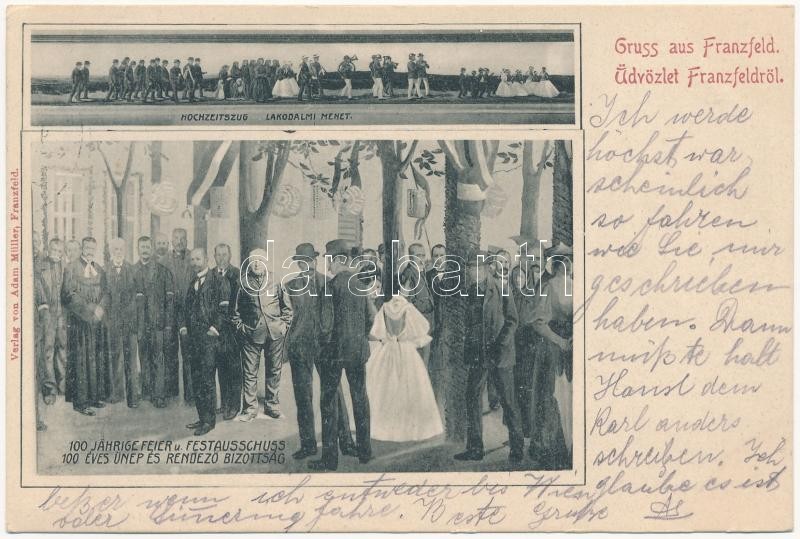 Gruss aus Franzfeld.
Üdvözlet Franzfeldröl.
HOCHZEITSZUG LAKODALMI MENET.
Verlag von Adam Müller, Franzfeld.
darabanth
100 JÄHRIGE FEIER u. FESTAUSSCHUSS
100 ÉVES ÜNEP ÉS RENDEZŐ BIZOTTSÁG
Ich werde
höchst war
scheinlich
so fahren
wie Sie mir
geschrieben
haben. Dann
müßte halt
Hansl dem
Karl anders
schreiben. Ich
glaube es ist
beßer wenn ich entweder bis Wien
oder fahre. Beste Grüße